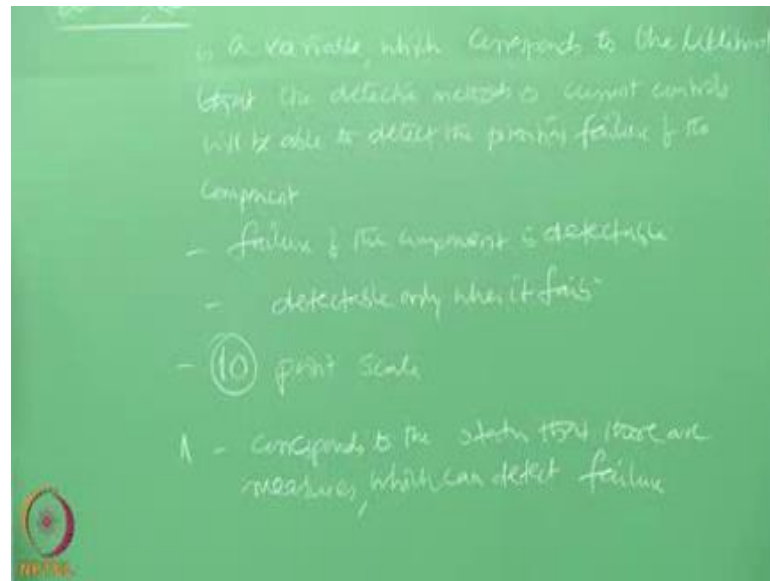 is a variable, which corresponds to the likelihood
that the detection methods or current controls
will be able to detect the potential failure of the
component
- failure of the component is detectable
- detectable only when it fails
- 10 point scale
1 - corresponds to the status that there are
measures, which can detect failure
NPTEL